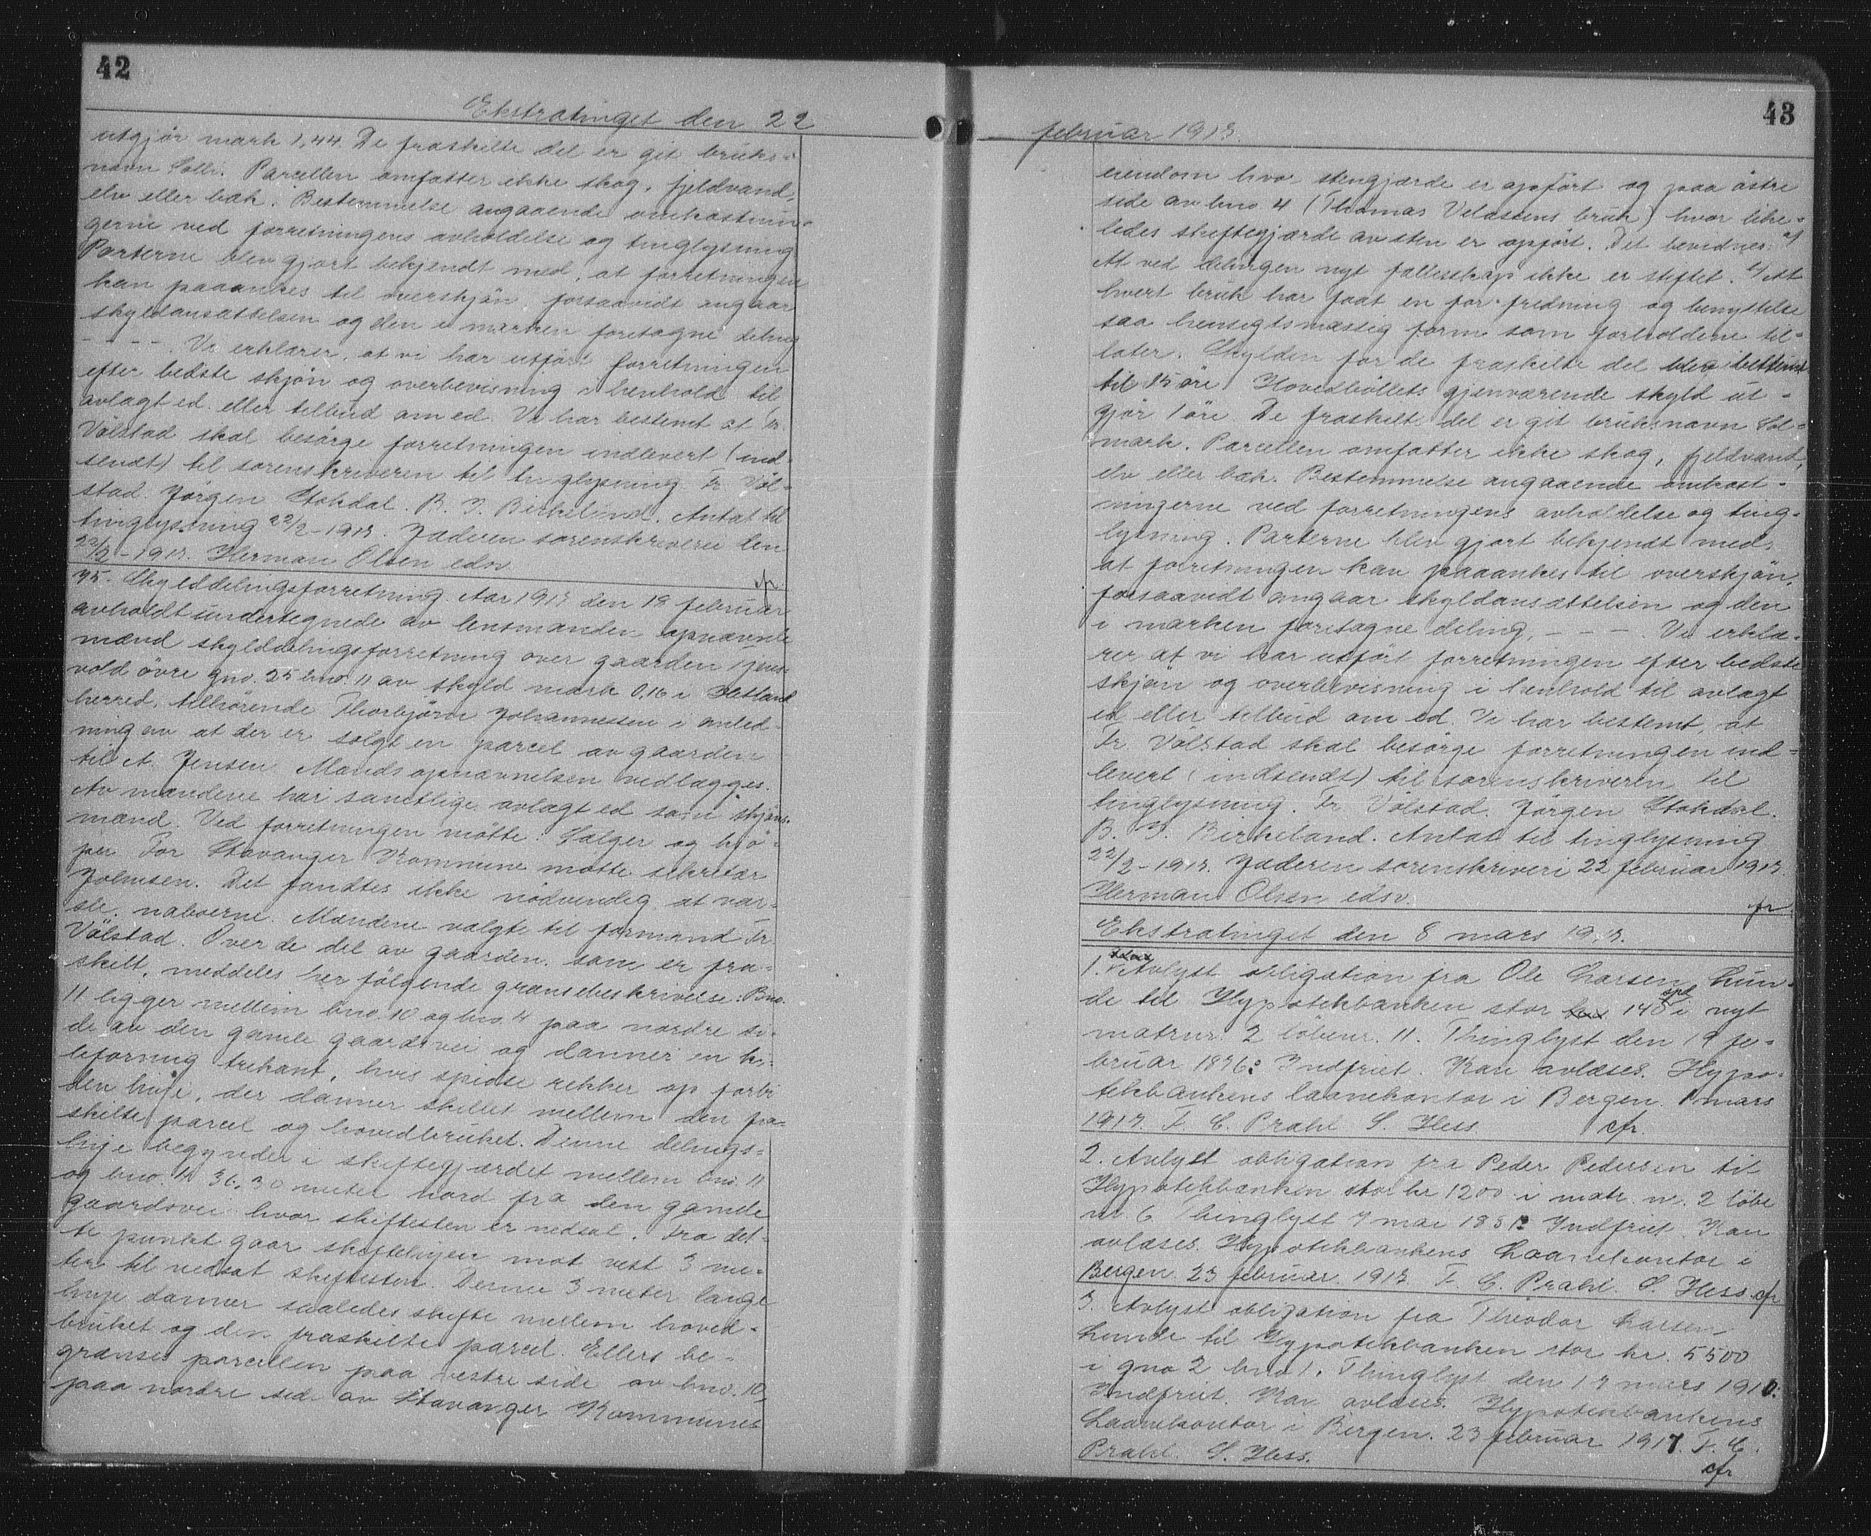 42
Ekstratinget den 22
utgjør mark 1,44. De fraskilte del er git bruks-
navn Solli. Parcellen omfatter ikke skog, fjeldvand,
elv eller bæk. Bestemmelse angaaende omkostnin-
gerne ved forretningens avholdelse og tinglysning
Parterne blev gjort bekjendt med, at forretningen
kan paaankes til overskjøn, forsaavidt angaar
skyldansættelsen og den i marken foretagne deling
- - - -. Vi erklærer, at vi har utført forretningen
efter bedste skjøn og overbevisning i henhold til
avlagt ed eller tilbud om ed. Vi har bestemt at Fr.
Vølstad skal besørge forretningen indlevert (ind-
sendt) til sorenskriveren til tinglysning. Fr. Vøl-
stad. Jørgen Stokdal. B. T. Birkeland. Antat til
tinglysning 22/2-1913. Jæderen sorenskriveri den
22/2-1913. Herman Olsen edsv. cfr.
75. Skylddelingsforretning. Aar 1913 den 18 februar
avholdt undertegnede av lensmanden opnævnte
mænd skylddelingsforretning over gaarden Tjens-
vold øvre gno. 25 bno. 11 av skyld mark 0,16 i Hetland
herred, tilhørende Thorbjørn Johannessen i anled-
ning av at der er solgt en parcel av gaarden
til A. Jensen. Mandsopnævnelsen vedlægges.
Av mændene har samtlige avlagt ed som skjøns-
mænd. Ved forretningen møtte: Sælger og kjø-
per. For Stavanger Kommune møtte sekretær
Johnsen. Det fandtes ikke nødvendig at var-
sle naboerne. Mændene valgte til formand Fr.
Vølstad. Over de del av gaarden, som er fra-
skilt, meddeles her følgende grænsebeskrivelse: Bno.
11 ligger mellem bno. 10 og bno. 4 paa nordre si-
de av den gamle gaardsvei og danner en ki-
leforming trekant, hvis spidse rækker op forbi
den linje, der danner skillet mellem den fra-
skilte parcel og hovedbruket. Denne delings-
linje begynder i skiftegjærdet mellem bno. 11
og bno. 10 36,30 meter nord fra den gamle
gaardsvei hvor skiftesten er nedsat. Fra det-
te punkt gaar skiftelinjen mot vest 3 me-
ter til nedsat skiftesten. Denne 3 meter lange
linje danner saaledes skifte mellem hoved-
bruket og den fraskilte parcel. Ellers be-
grænses parcellen paa vestre side av bno. 10,
paa nordre side av Stavanger Kommunes
43
februar 1913.
eiendom hvor stengjærde er opført og paa østre
side av bno. 4 (Thomas Velassens bruk) hvor like-
ledes skiftegjærde av sten er opført. Det bevidnes: a)
At ved delingen nyt fællesskap ikke er stiftet. b) At
hvert bruk har faat en for fredning og benyttelse
saa hensigtsmæssig form som forholdene til-
later. Skylden for de fraskilte del blev bestemt
til 15 øre. Hovedbølets gjenværende skyld ut-
gjør 1 øre. De fraskilt del er git bruksnavn Sol-
mark. Parcellen omfatter ikke skog, fjeldvand,
elv eller bæk. Bestemmelse angaaende omkost-
ningerne ved forretningens avholdelse og ting-
lysning. Parterne blev gjort bekjendt med,
at forretningen kan paaankes til overskjøn,
forsaavidt angaar skyldansættelsen og den
i marken foretagne deling, - - -. Vi erklæ-
rer at vi har utført forretningen efter bedste
skjøn og overbevisning i henhold til avlagt
ed eller tilbud om ed. Vi har bestemt, at
Fr. Vølstad skal besørge forretningen ind-
levert (indsendt) til sorenskriveren til
tinglysning. Fr. Vølstad. Jørgen Stokdal.
B. T. Birkeland. Antat til tinglysning
22/2-1913. Jæderen sorenskriveri 22 februar 1913.
Herman Olsen edsv. cfr
Ekstratinget den 8 mars 1913.
1. Avlyst obligation fra Ole Larsen Lun-
de til Hypotekbanken stor 140 spd i nyt
matrnr. 2 løbenr. 11. Thinglyst den 19 fe-
bruar 1876: Indfriet. Kan avlæses. Hypo-
tekbankens laanekontor i Bergen. 1 mars
1913. F. C. Prahl S. Hess. cfr.
2. Avlyst obligation fra Peder Pedersen til
Hypotekbanken stor kr. 1200 i matr. nr. 2 løbe
nr. 6 Thinglyst 7 mai 1881: Indfriet Kan
avlæses. Hypotekbankens Laanekontor i
Bergen 23 februar 1913. F. C. Prahl. S. Hess. cfr
3. Avlyst obligation fra Theodor Larsen
Lunde til Hypotekbanken stor kr. 5500
i gno 2 bno 1. Thinglyst den 17 mars 1910:
Indfriet. Kan avlæses. Hypotekbankens
Laanekontor i Bergen. 23 februar 1913. F. C.
Prahl. S. Hess. cfr